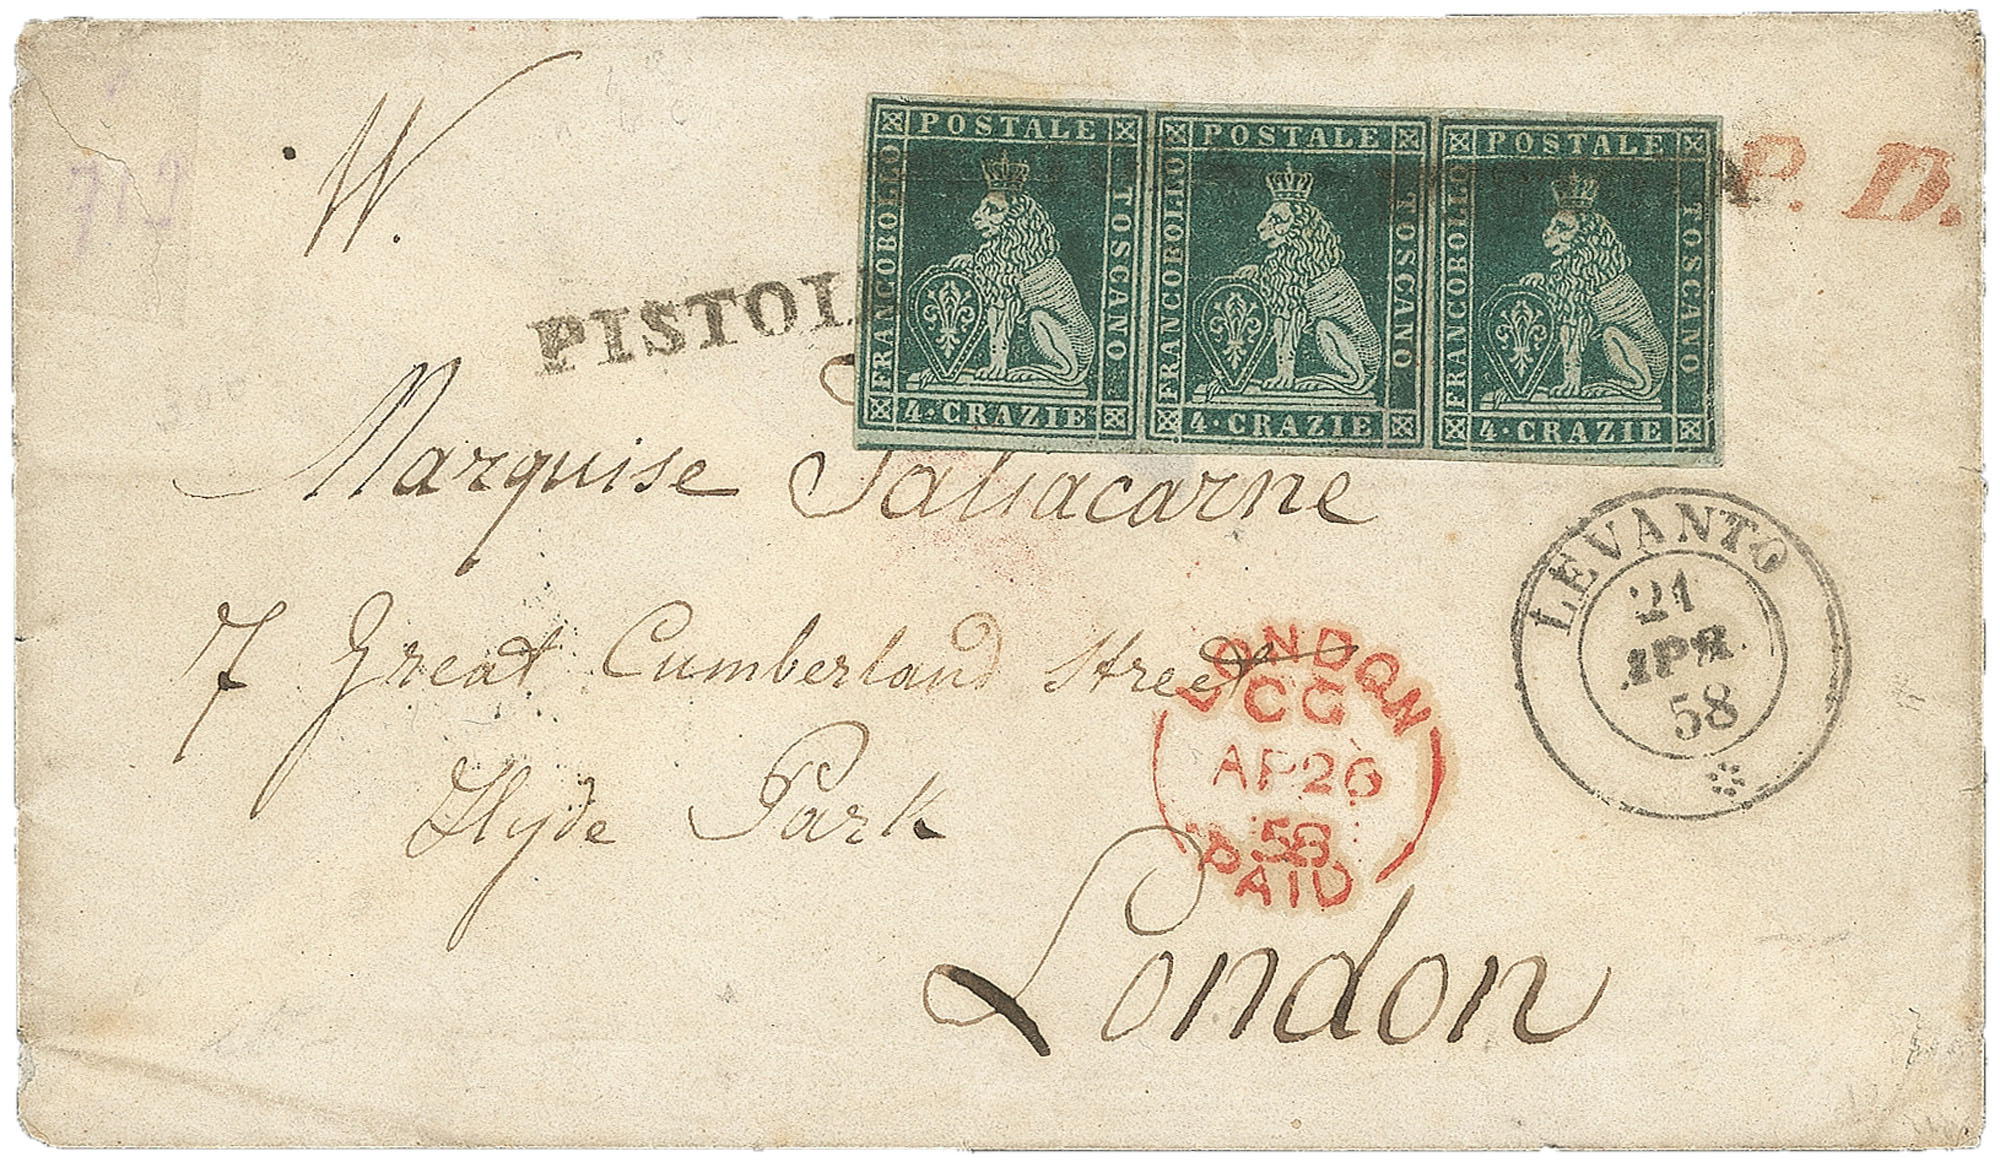 W.
POSTALE
FRANCOBOLLO
TOSCANO
4·CRAZIE
POSTALE
FRANCOBOLLO
TOSCANO
4·CRAZIE
POSTALE
FRANCOBOLLO
TOSCANO
4·CRAZIE
P. D.
712
PISTOI
Marquise Taliacarne
7 Great Cumberland Street
Hyde Park
London
LEVANTO
21
APR
58
LONDON
CG
AP 26
58
PAID